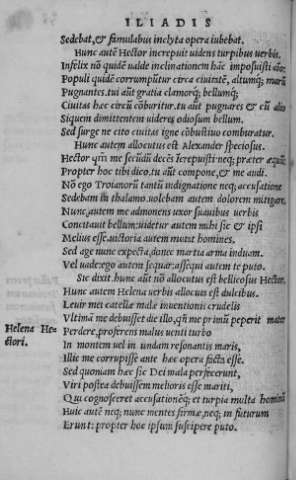 ILIADIS
Sedebat, & famulabus inclyta opera iubebat.
Hunc autē Hector increpuit uidens turpibus uerbis.
Infelix nō quidē ualde inclinationem hāc imposuisti aīo:
Populi quidē corrumpūtur circa ciuitatē, altumq; murū
Pugnantes. tui aūt gratia clamorq; bellumq;
Ciuitas hæc circū cōburitur. tu aūt pugnares & cū alio
Sicuem dimittentem uideres odiosum bellum.
Sed surge ne cito ciuitas igne cōbustiuo comburatur.
Hunc autem allocutus est Alexander speciosus.
Hector qm̄ me secūdū decēs īcrepuisti neq; præter
Propter hoc tibi dico. tu aūt compone, & me audi.
Nō ego Troianorū tantū indignatione neq; accusatione
Sedebam in thalamo. uolebam autem dolorem mitigare.
Nunc autem me admonens uxor suauibus uerbis
Concitauit bellum: uidetur autem mihi sic & ipsi
Melius esse. uictoria autem mutat homines.
Sed age nunc expecta, donec martia arma induam.
Vel uade: ego autem sequar: assequi autem te puto.
Sic dixit. hunc aūt nō allocutus est bellicosus Hector.
Hunc autem Helena uerbis allocuta est dulcibus.
Leuir mei catellæ malæ inuentionis crudelis
Vltimā me debuisset die illo, qn̄ me primū peperit mater
Helena He= Perdere, proferens malus uenti turbo
ctori. In montem uel in undam resonantis maris,
Illic me corrupisse ante hæc opera facta esse.
Sed quoniam hæc sic Dei mala perfecerunt,
Viri postea debuissem melioris esse mariti,
Qui cognosceret accusationēq; et turpia multa hominū
Huic autē neq; nunc mentes firmæ, neq; in futurum
Erunt: propter hoc ipsum suscipere puto.